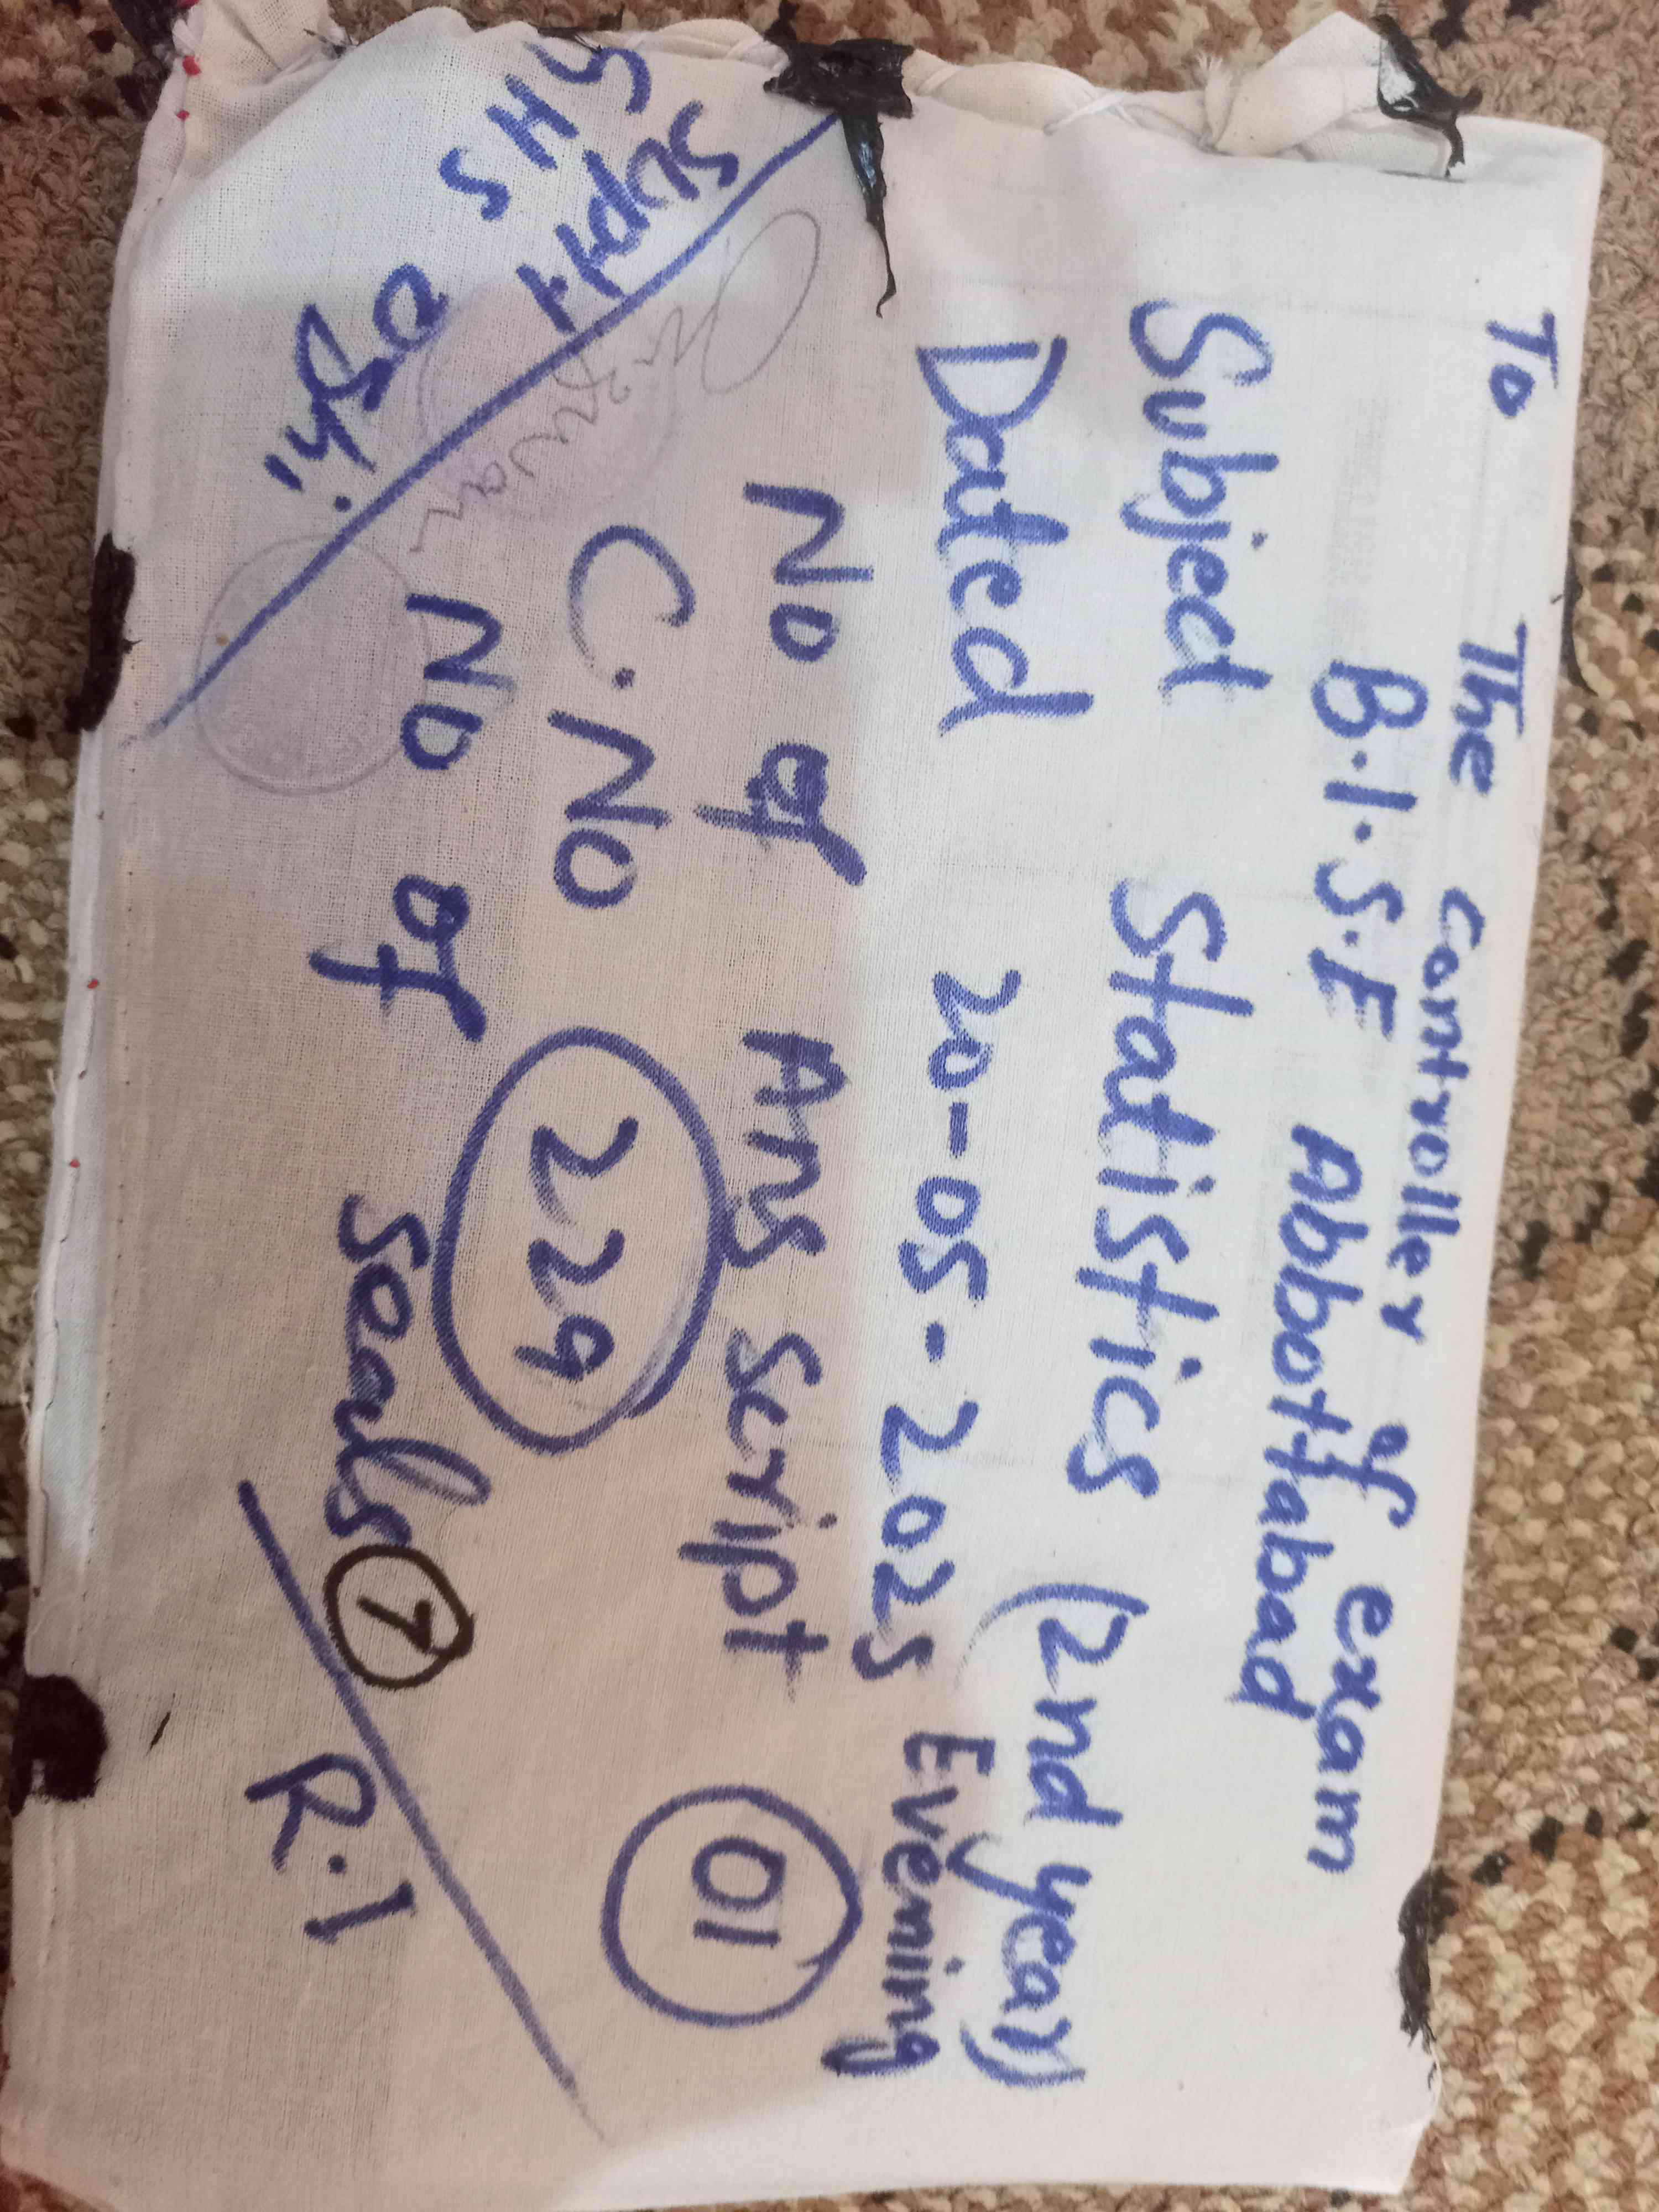 To The Controller of exam
B.I.S.E Abbottabad
Subject Statistics (2nd year)
Dated 20-05-2025 Evening
No of Ans Script 01
C.No 229
No of Seals 7
R.I
Supdt
GHS
Oghi.
Rizwan